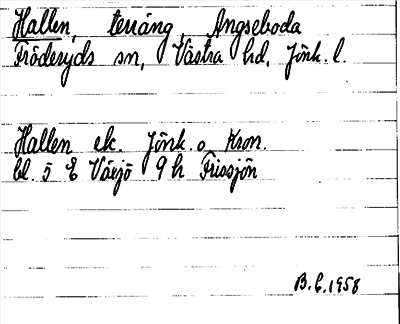 Hallen, terräng, Ängseboda
Fröderyds sn, Västra hd, Jönk. l.
Hallen ek. Jönk. o Kron.
bl. 5 E Växjö 9 h Frissjön
B.E. 1958